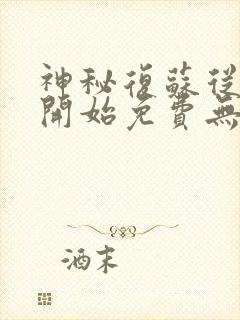 神秘復蘇從
開始免費無
酒末